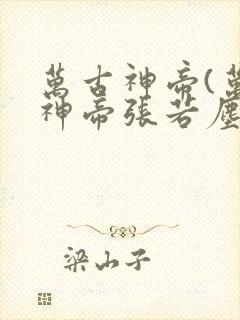 萬古神帝(萬
神帝張若塵
梁山子